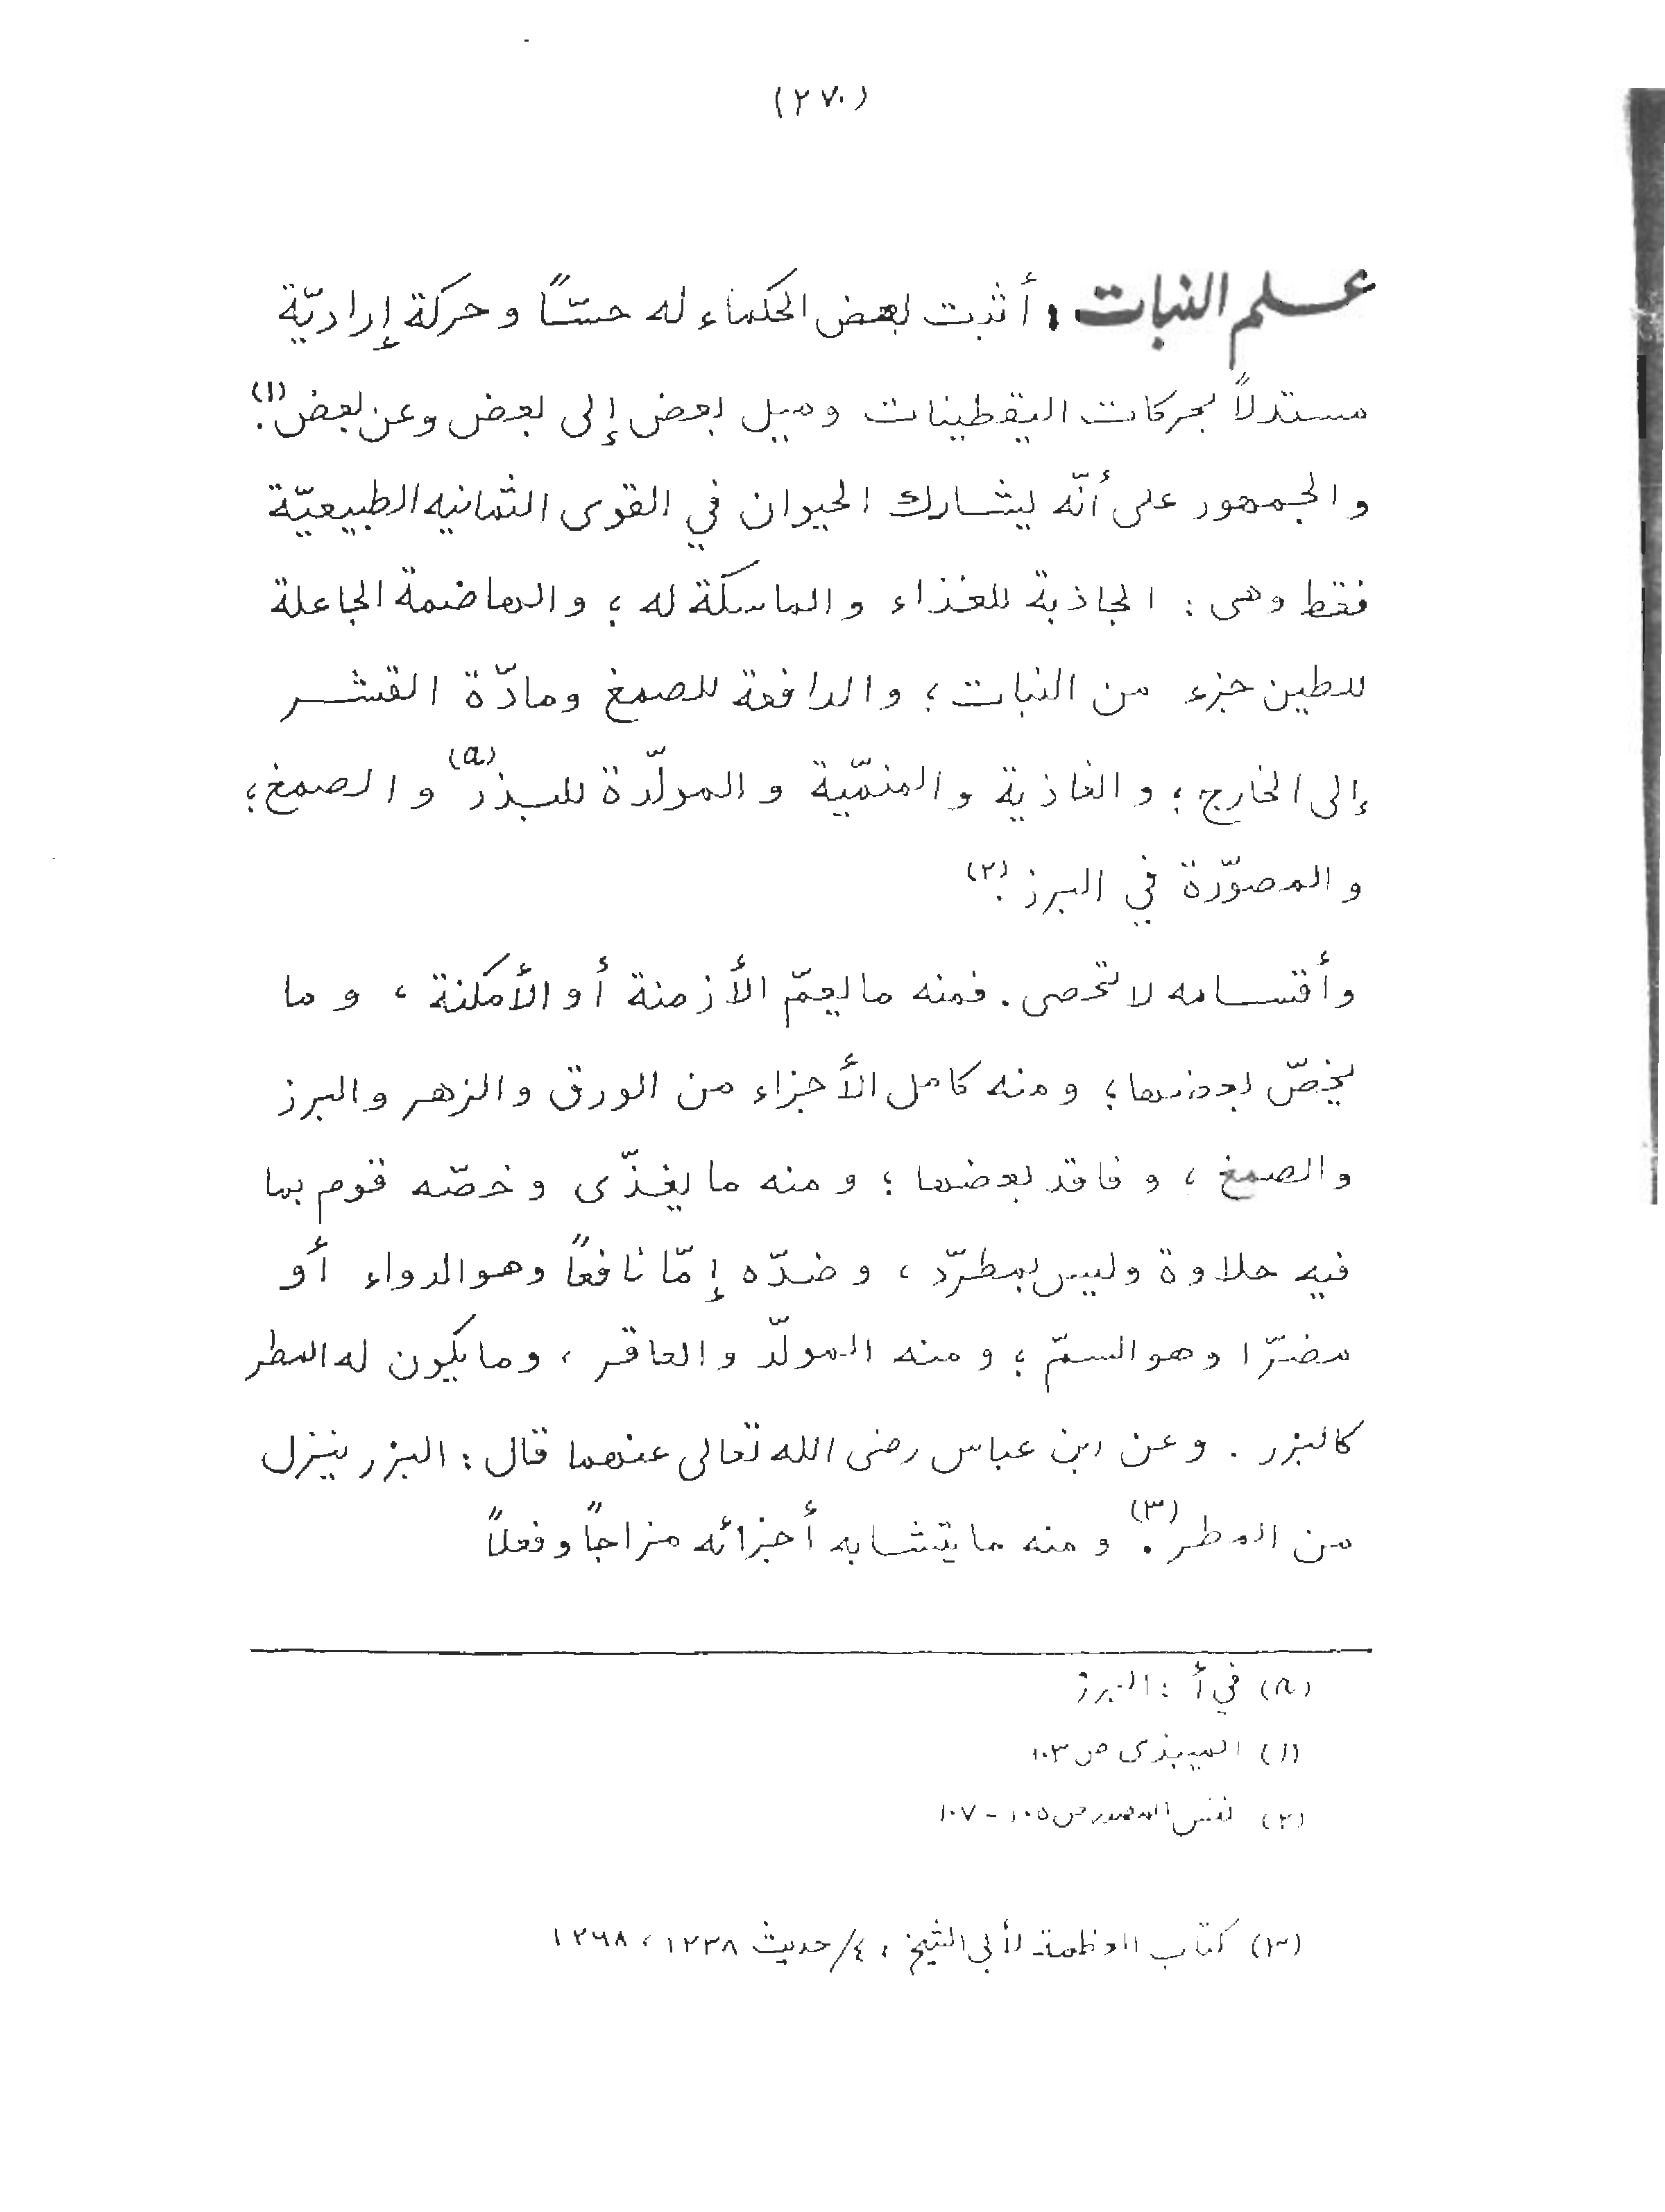 (٢٧٠)
علم النبات : أثبت بعض الحكماء له حسّاً و حركة إراديّة
مستدلاً بحركات اليقطينات وميل بعض إلى بعض وعن بعض.(١)
والجمهور على أنّه يشارك الحيوان في القوى الثمانيه الطبيعيّة
فقط وهى : الجاذبة للغذاء والماسكة له ؛ والهاضمة الجاعلة
للطين جزء من النبات ؛ والدافعة للصمغ ومادّة القشر
إلى الخارج ؛ والغاذية والمنمّية والمولّدة للبذر(a) والصمغ ؛
والمصوّرة في البرز .(٢)
وأقسامه لا تحصى . فمنه ما يعمّ الأزمنة أو الأمكنة ، وما
يخصّ بعضها ؛ ومنه كامل الأجزاء من الورق والزهر والبرز
والصمغ ، وفاقد بعضها ؛ ومنه ما يغذّى وخصّه قوم بما
فيه حلاوة وليس بمطرّد ، وضدّه إمّا نافعاً وهو الدواء أو
مضرّا وهو السمّ ؛ ومنه المولّد والعاقر ، وما يكون له المطر
كالبزر . وعن ابن عباس رضى الله تعالى عنهما قال : البزر ينزل
من المطر .(٣) ومنه ما يتشابه أجزائه مزاجاً وفعلاً
(a) في أ : البرز
(١) الميبذى ص ١٠٣
(٢) نفس المصدر ص ١٠٥ - ١٠٧
(٣) كتاب العظمة لأبي الشيخ ، ٤/حديث ١٢٣٨ ، ١٢٦٨